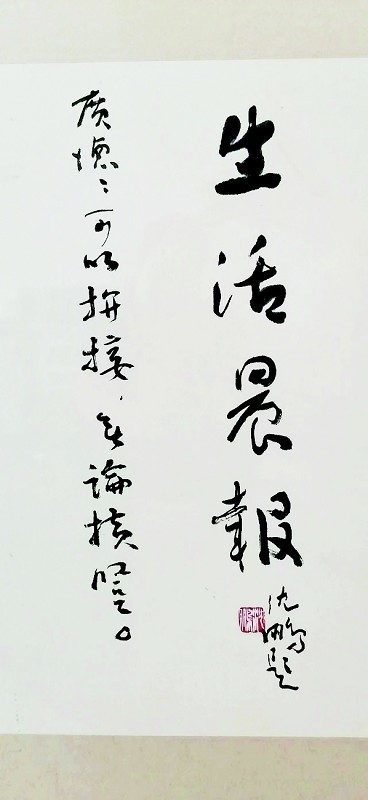 生活晨報
沈鵬題
廣德：可以拼接，無論橫豎。